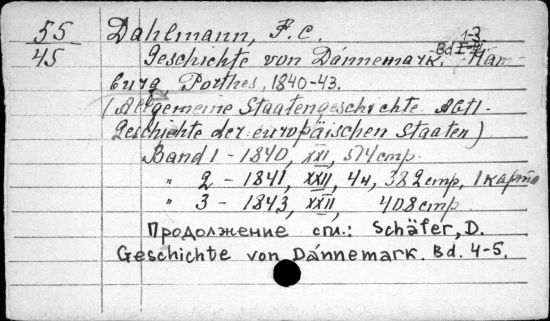 55 Dahlmann, F. C. 1-3
45 Geschichte von Dännemark. Bd Ham-
burg Perthes, 1840-43.
(Allgemeine Staatengeschichte. Abt I.
Geschichte der europäischen Staaten)
Band 1 - 1840, XXI, 514 стр.
" 2 - 1841, XXII, 4н, 382 стр, 1 карта
" 3 - 1843, XXII, 408 стр
Продолжение см.: Schäfer, D.
Geschichte von Dännemark. Bd. 4-5.